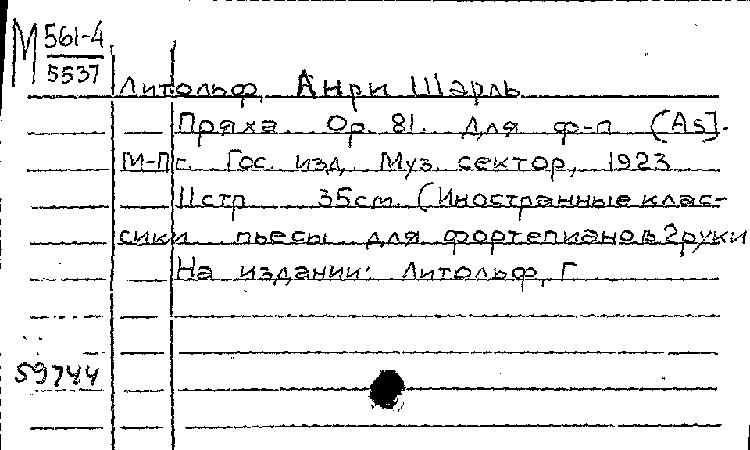 М 561-4
5537
Литольф, Анри Шарль
Пряха. Op. 81. Для ф-п (As].
М-Пг. Гос. изд. Муз. сектор, 1923
11 стр 35 см. (Иностранные клас-
сики пьесы для фортепиано в 2 руки
На издании: Литольф, Г
59744